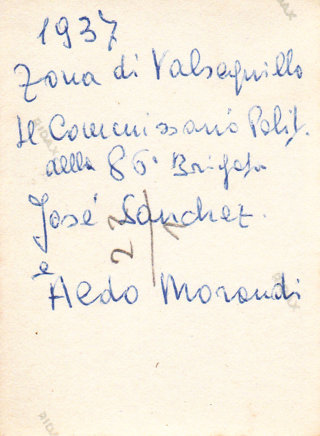 1937
Zona di Valsequillo
Il Commissario Polit.
della 86ª Brigata
José Sanchez.
e
Aldo Morandi